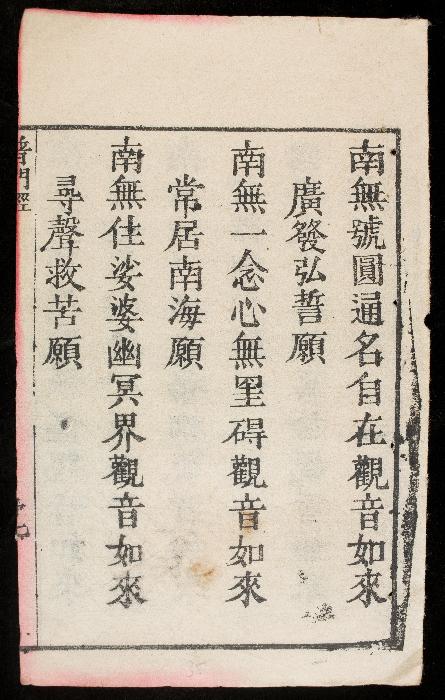 南無號圓通名自在觀音如來
廣發弘誓願
南無一念心無罣碍觀音如來
常居南海願
南無住娑婆幽冥界觀音如來
尋聲救苦願
普門經